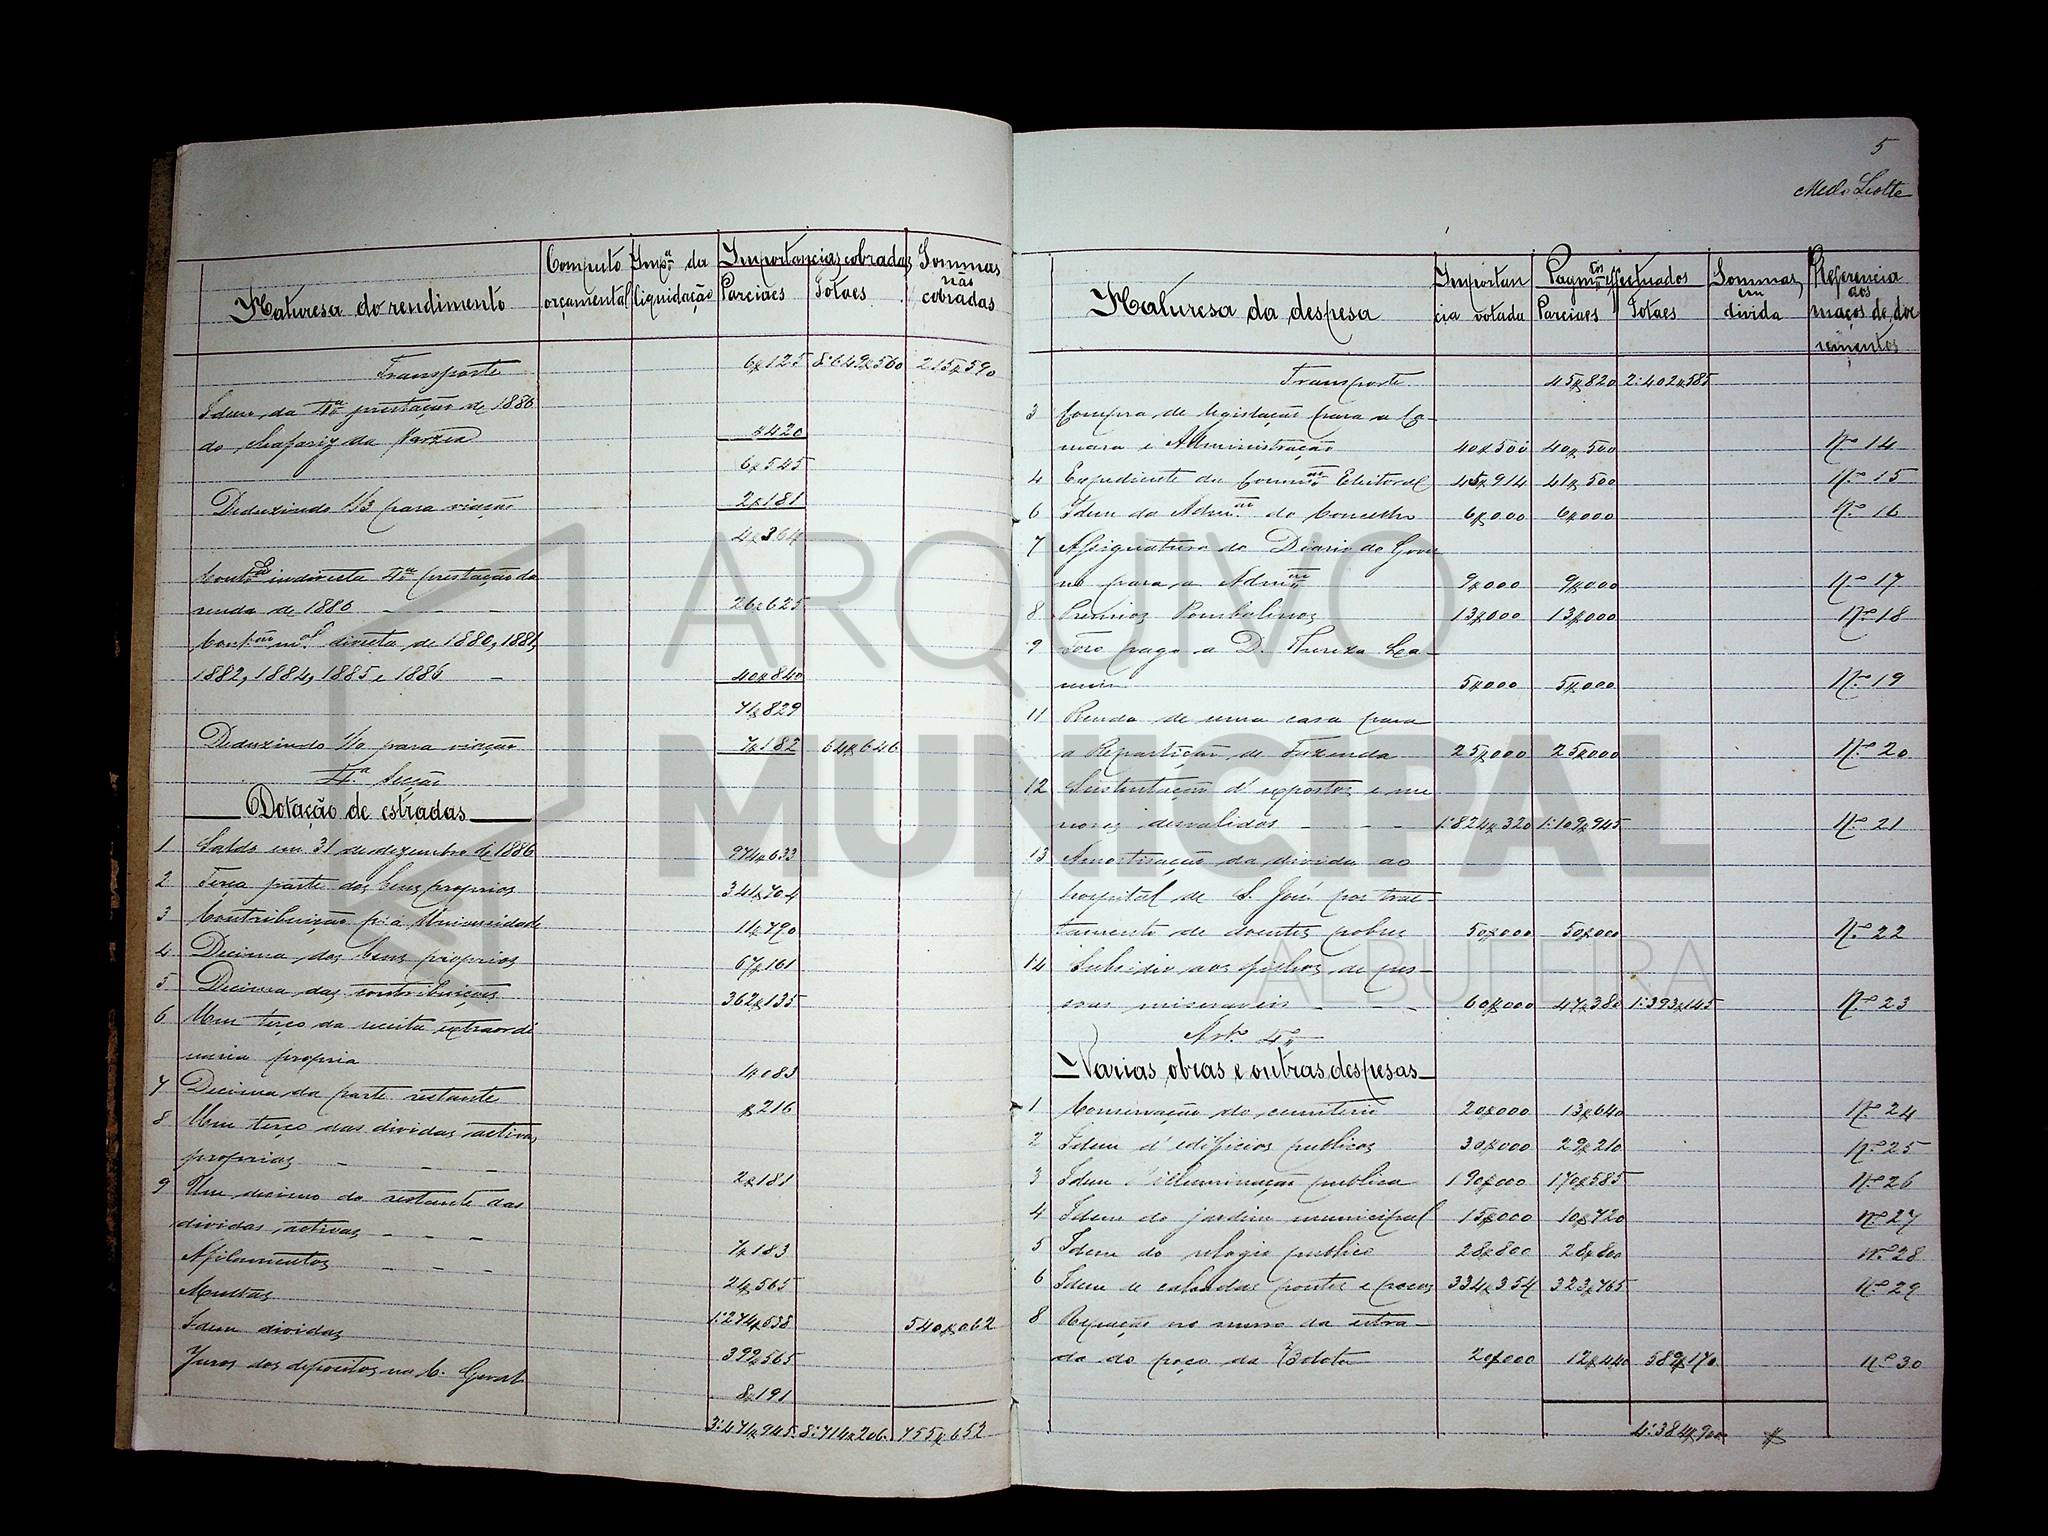 Naturesa do rendimento
Computo orçamental
Imp.ª da liquidação
Importancias cobradas
Parciaes
Totaes
Sommas não cobradas
Transporte 6$125 8:649$560 215$590
Idem da 4.ª prestação de 1886
do chafariz da $420
6$545
Deduzindo 1/3 para viação 2$181
4$364
indirecta 4.ª prestação da
renda de 1886 - - - 26$625
directa de 1880, 1881,
1882, 1884, 1885 e 1886 - 40$840
71$829
Deduzindo 1/10 para viação 7$182 64$646
4.ª Secção
Dotação de estradas
1 Saldo em 31 de dezembro de 1886 974$633
2 Terça parte dos bens proprios 341$704
3 Contribuição p.ª a Universidade 11$790
4 Decima dos bens proprios 67$161
5 Decima das contribuições 362$135
6 Um terço da receita extraordi
naria propria 1$083
7 Decima da parte restante $216
8 Um terço das dividas activas
proprias - - - 2$181
9 Um decimo do restante das
dividas activas - - - 7$183
Afilamentos - - - 26$565
Multas 1:274$538 540$062
Idem dividas 399$565
Juros dos depositos na C. Geral 8$191
3:471$945 8:714$206 755$652
5
Mello Leotte
Naturesa da despesa
Importan
cia votada
Pagm.tos effectuados
Parciaes
Totaes
Sommas em divida
Referencia dos maços de docu
mentos
Transporte 45$820 2:402$585
3 Compra de legislação para a Ca-
mara e Administração 40$500 40$500 N.º 14
4 Expediente da Comm.ão Eleitoral 45$914 41$500 N.º 15
6 Idem da Adm.ão do Concelho 6$000 6$000 N.º 16
7 Assignatura do Diario do Gover
no para a Adm.ão 9$000 9$000 N.º 17
8 Premios Pombalinos 13$000 13$000 N.º 18
9 Foro pago a D. Thereza
5$000 5$000 N.º 19
11 Renda de uma casa para
a Repartição de Fazenda 25$000 25$000 N.º 20
12 Sustentação d'expostos e me
nores desvalidos - - - 1:824$320 1:109$945 N.º 21
13 Amortisação da divida ao
hospital de S. José por trac-
tamento de doentes pobres 50$000 50$000 N.º 22
14 Subsidio aos filhos de pes-
soas miseraveis - - - 60$000 47$380 1:393$145 N.º 23
Art.º 4.º
Varias obras e outras despesas
1 Conservação do cemiterio 20$000 13$640 N.º 24
2 Idem d'edificios publicos 30$000 29$210 N.º 25
3 Idem d'illuminação publica 190$000 170$585 N.º 26
4 Idem do jardim municipal 15$000 10$720 N.º 27
5 Idem do relogio publico 28$800 28$800 N.º 28
6 Idem de calçadas pontes e poços 334$354 323$765 N.º 29
8 Reparação no muro da estra-
da do poço da 20$000 12$440 589$170 N.º 30
4:384$900 $
ARQUIVO
MUNICIPAL
ALBUFEIRA